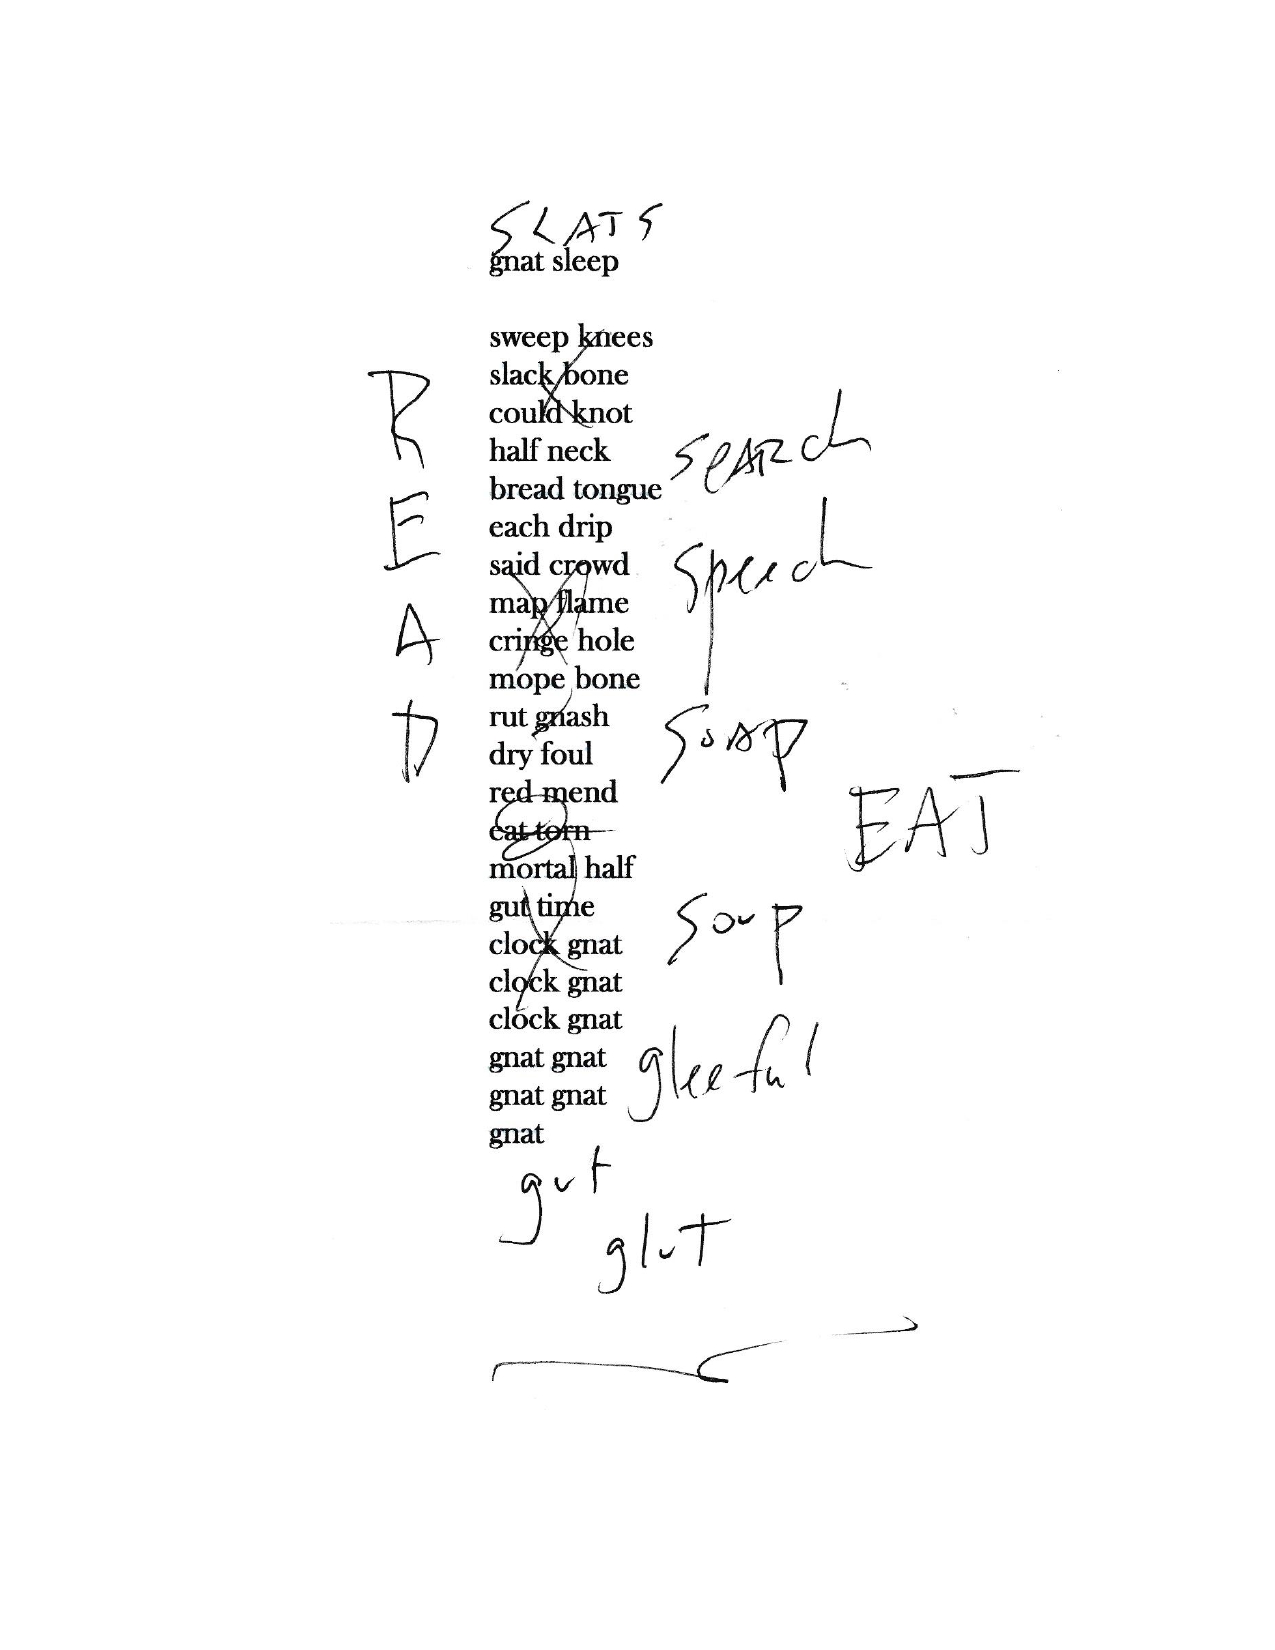 SLATS
gnat sleep
sweep knees
slack bone
could knot
half neck
bread tongue
each drip
said crowd
map flame
cringe hole
mope bone
rut gnash
dry foul
red mend
eat torn
mortal half
gut time
clock gnat
clock gnat
clock gnat
gnat gnat
gnat gnat
gnat
READ
search
speech
soap
EAT
soup
gleeful
gut
glut